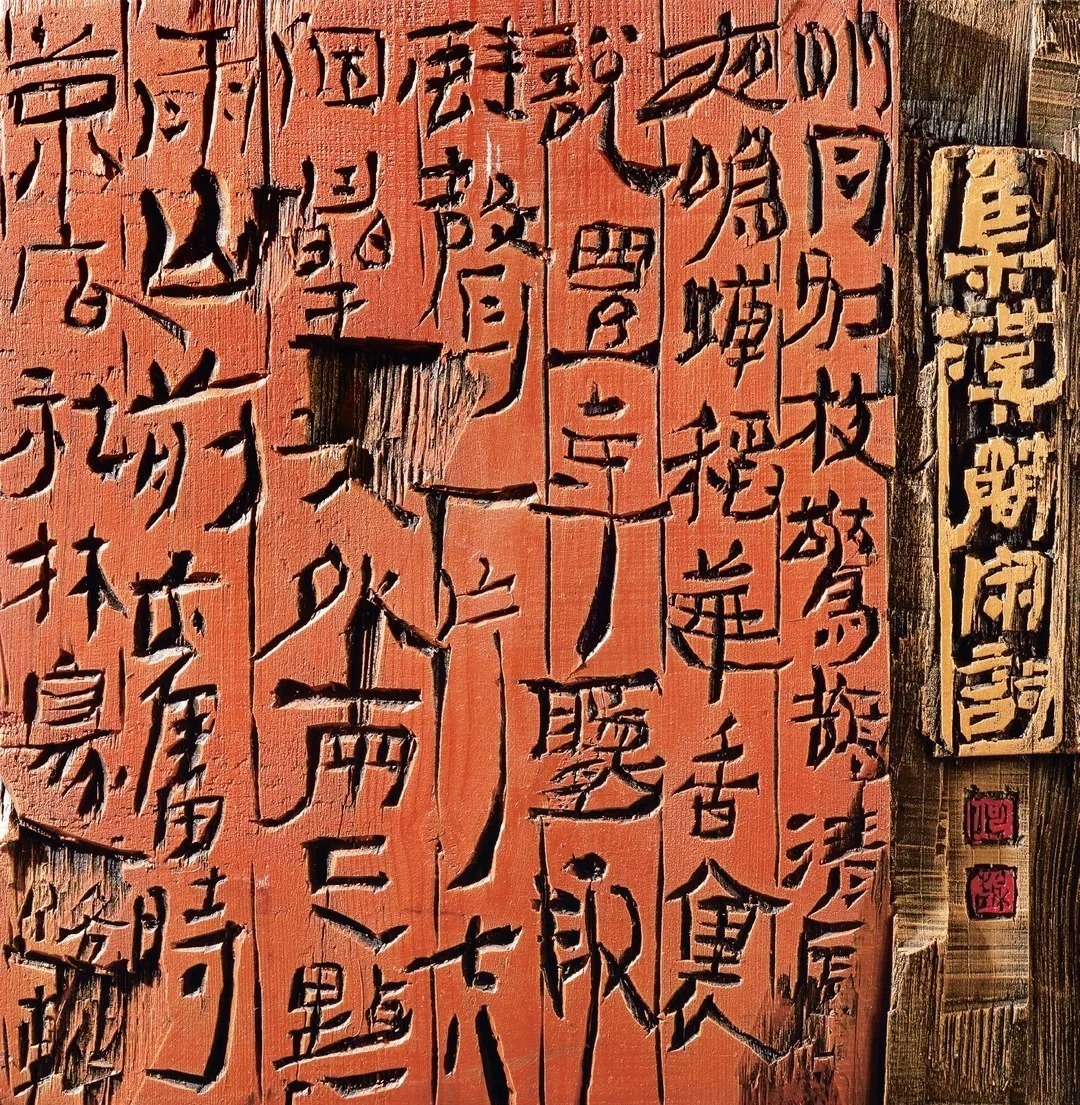 集漢簡宋詞
明月別枝驚鵲清風
夜鳴蟬稻華香裏
說豐年聽取
聲一片七八
個星天外兩三點
雨山前舊時
茅店社林邊路